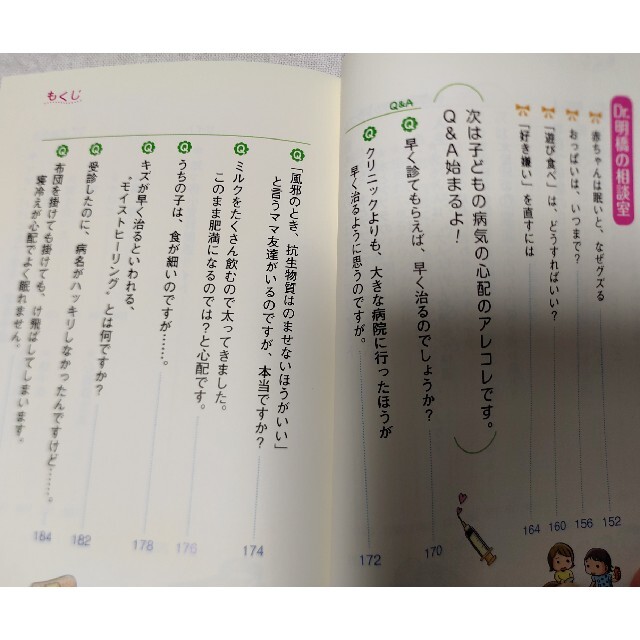 Dr.明橋の相談室
赤ちゃんは眠いと、なぜグズる
152
おっぱいは、いつまで？
156
「遊び食べ」は、どうすればいい？
160
「好き嫌い」を直すには
164
次は子どもの病気の心配のアレコレです。
Q&A始まるよ！
Q&A
Q 早く診てもらえば、早く治るのでしょうか？
170
Q クリニックよりも、大きな病院に行ったほうが
早く治るように思うのですが。
172
もくじ
Q 「風邪のとき、抗生物質はのませないほうがいい」
と言うママ友達がいるのですが、本当ですか？
174
Q ミルクをたくさん飲むので太ってきました。
このまま肥満になるのでは？と心配です。
176
Q うちの子は、食が細いのですが……。
178
Q キズが早く治るといわれる、
“モイストヒーリング”とは何ですか？
182
Q 受診したのに、病名がハッキリしなかったんですけど……。
184
Q 布団を掛けても掛けても、け飛ばしてしまいます。
寝冷えが心配でよく眠れません。